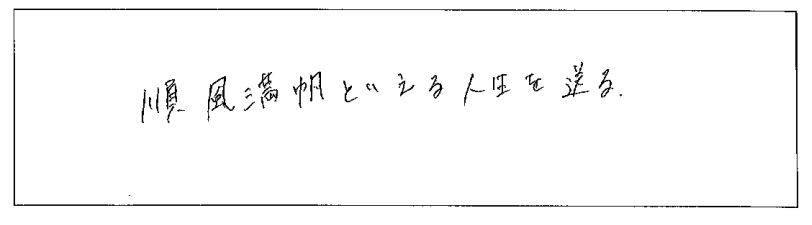 順風満帆といえる人生を送る.